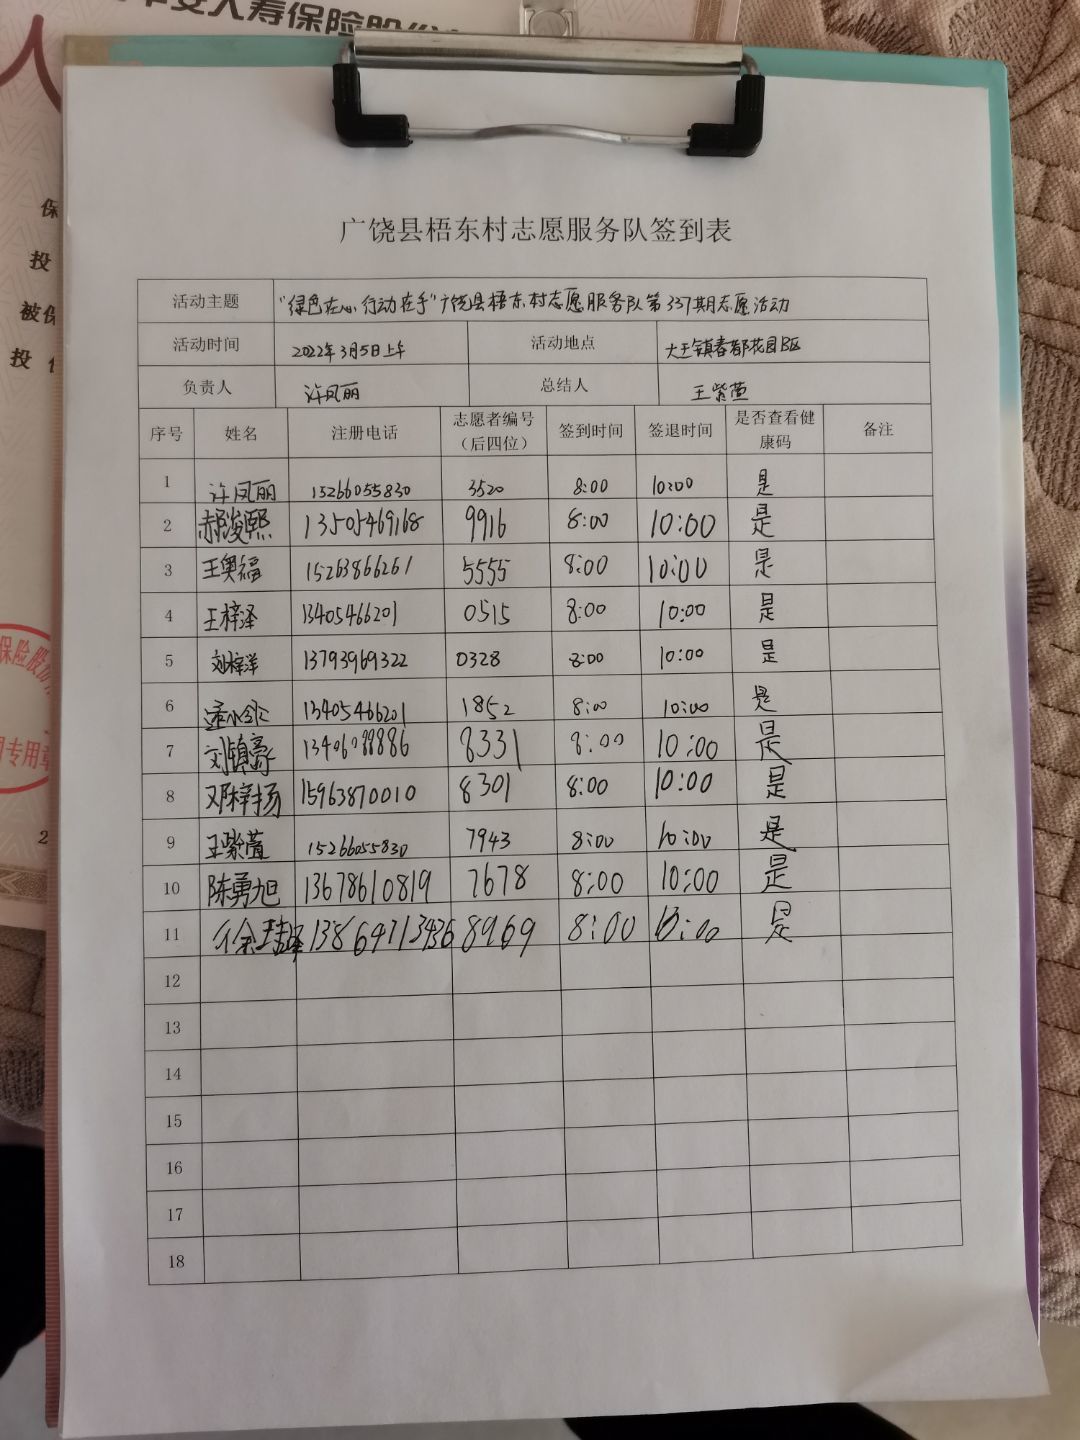 人寿保险股份
保
投
被保
投
保险股份
专用章
2
广饶县梧东村志愿服务队签到表
活动主题 "绿色在心 行动在手"广饶县梧东村志愿服务队第337期志愿活动
活动时间 2022年3月5日上午 活动地点 大王镇春都花园B区
负责人 许凤丽 总结人 王紫萱
序号 姓名 注册电话 志愿者编号（后四位） 签到时间 签退时间 是否查看健康码 备注
1 许凤丽 15266055830 3520 8:00 10:00 是
2 郝浚熙 13505469168 9916 8:00 10:00 是
3 王奥福 15263866261 5555 8:00 10:00 是
4 王梓泽 13405466201 0515 8:00 10:00 是
5 刘梓洋 13793969322 0328 8:00 10:00 是
6 13405466201 1852 8:00 10:00 是
7 刘镇豪 8331 8:00 10:00 是
8 邓梓扬 15963870010 8301 8:00 10:00 是
9 王紫萱 15266055830 7943 8:00 10:00 是
10 陈勇旭 13678610819 7678 8:00 10:00 是
11 8969 8:00 10:00 是
12
13
14
15
16
17
18